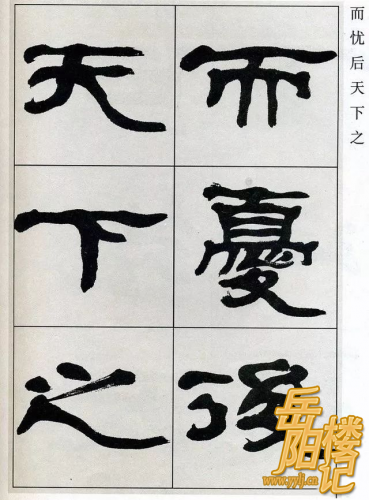 而忧后天下之
而憂後
天下之
岳阳楼记
www.yylj.cn